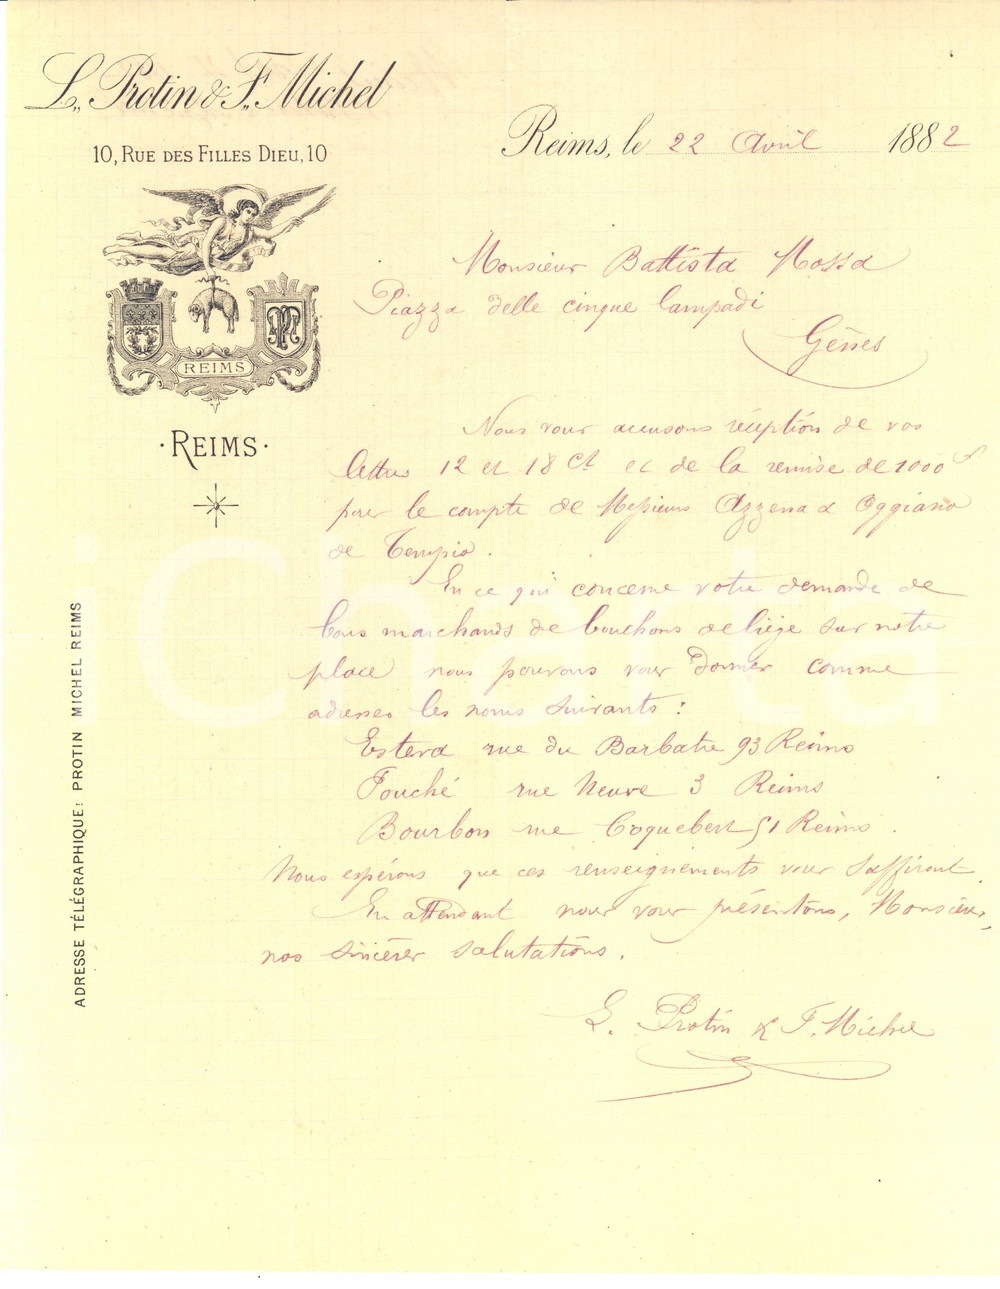 L. Protin & F. Michel
10, Rue des Filles Dieu, 10
REIMS
· REIMS ·
ADRESSE TÉLÉGRAPHIQUE: PROTIN MICHEL REIMS
Reims, le 22 Avril 1882
Monsieur Battista Mossa
Piazza delle cinque lampadi
Gênes
Nous vous accusons réception de vos
lettres 12 et 18 ct et de la remise de 1000 f
pour le compte de Messieurs Azzena & Oggiano
de Tempio.
En ce qui concerne votre demande de
bons marchands de bouchons de liège sur notre
place nous pouvons vous donner comme
adresses les noms suivants :
Esteva rue du Barbatre 93 Reims
Fouché rue Neuve 3 Reims
Bourbon rue Coquebert 51 Reims.
Nous espérons que ces renseignements vous suffiront.
En attendant nous vous présentons, Monsieur,
nos sincères salutations.
L. Protin & F. Michel